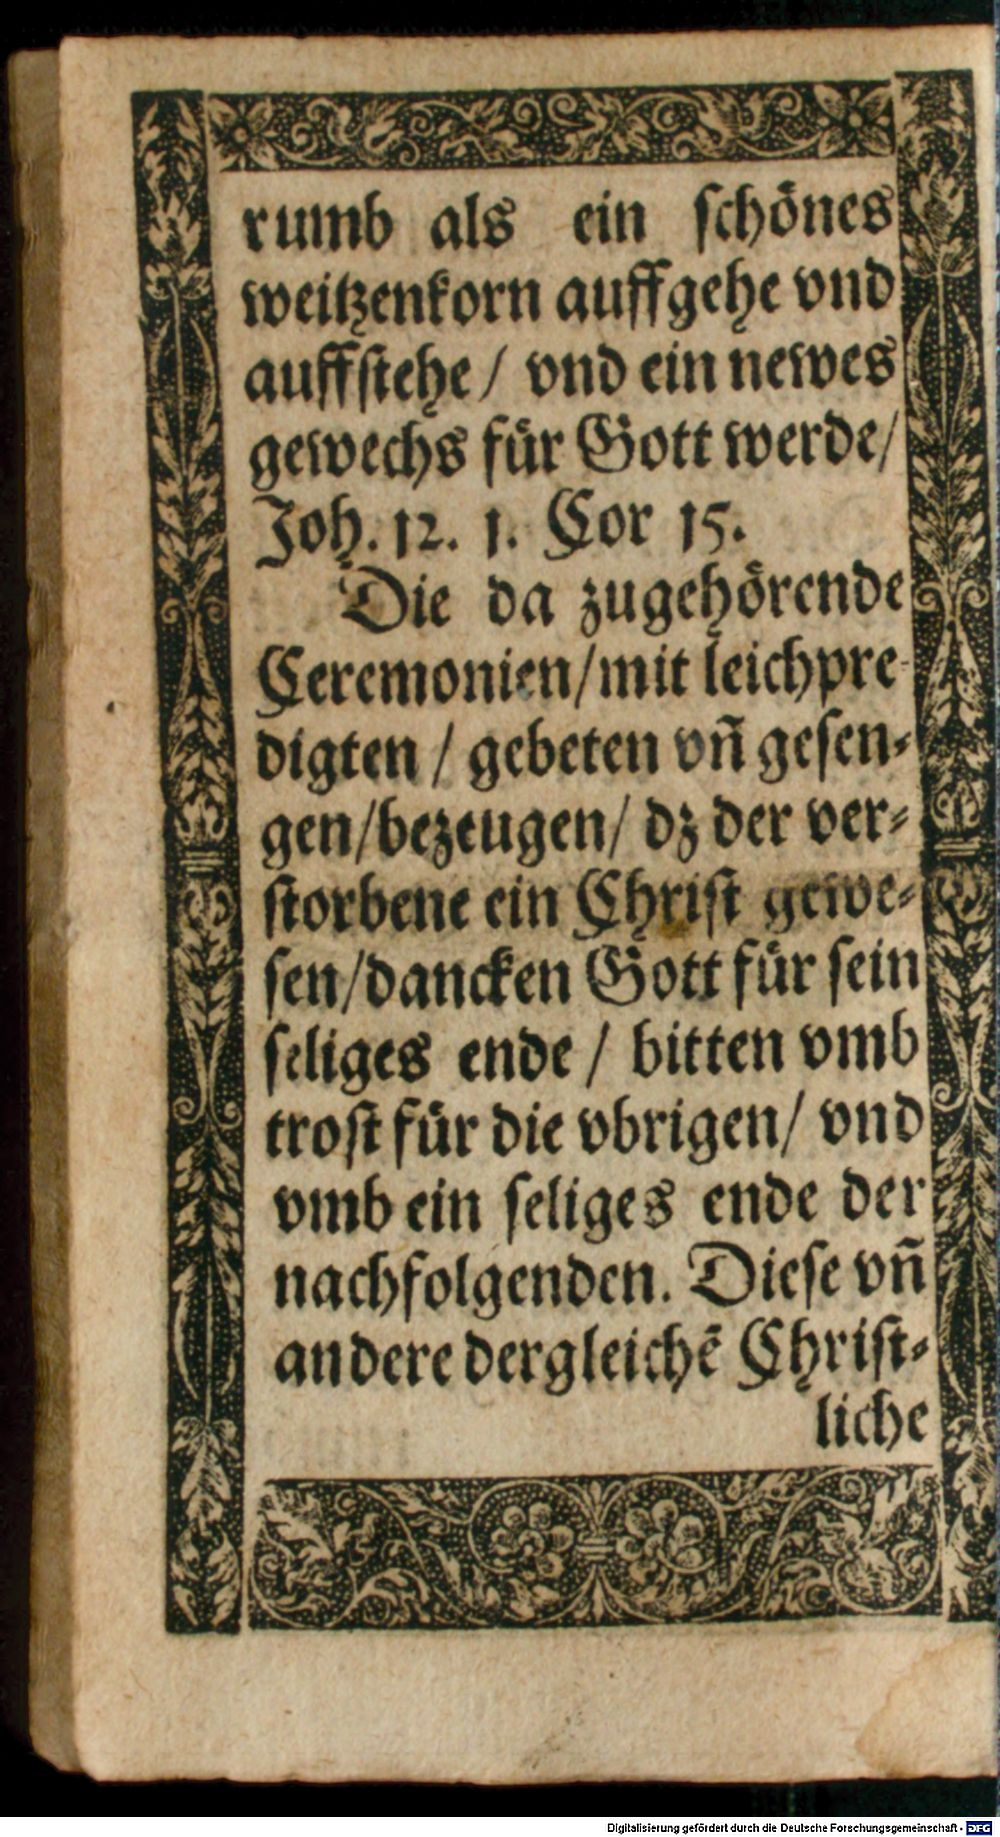 rumb als ein schönes
weitzenkorn auffgehe vnd
auffstehe / vnd ein newes
gewechs für Gott werde /
Joh. 12. 1. Cor 15.
Die da zugehörende
Ceremonien / mit leichpre-
digten / gebeten vñ gesen-
gen / bezeugen / dz der ver-
storbene ein Christ gewe-
sen / dancken Gott für sein
seliges ende / bitten vmb
trost für die vbrigen / vnd
vmb ein seliges ende der
nachfolgenden. Diese vñ
andere dergleichē Christ-
liche
Digitalisierung gefördert durch die Deutsche Forschungsgemeinschaft - DFG